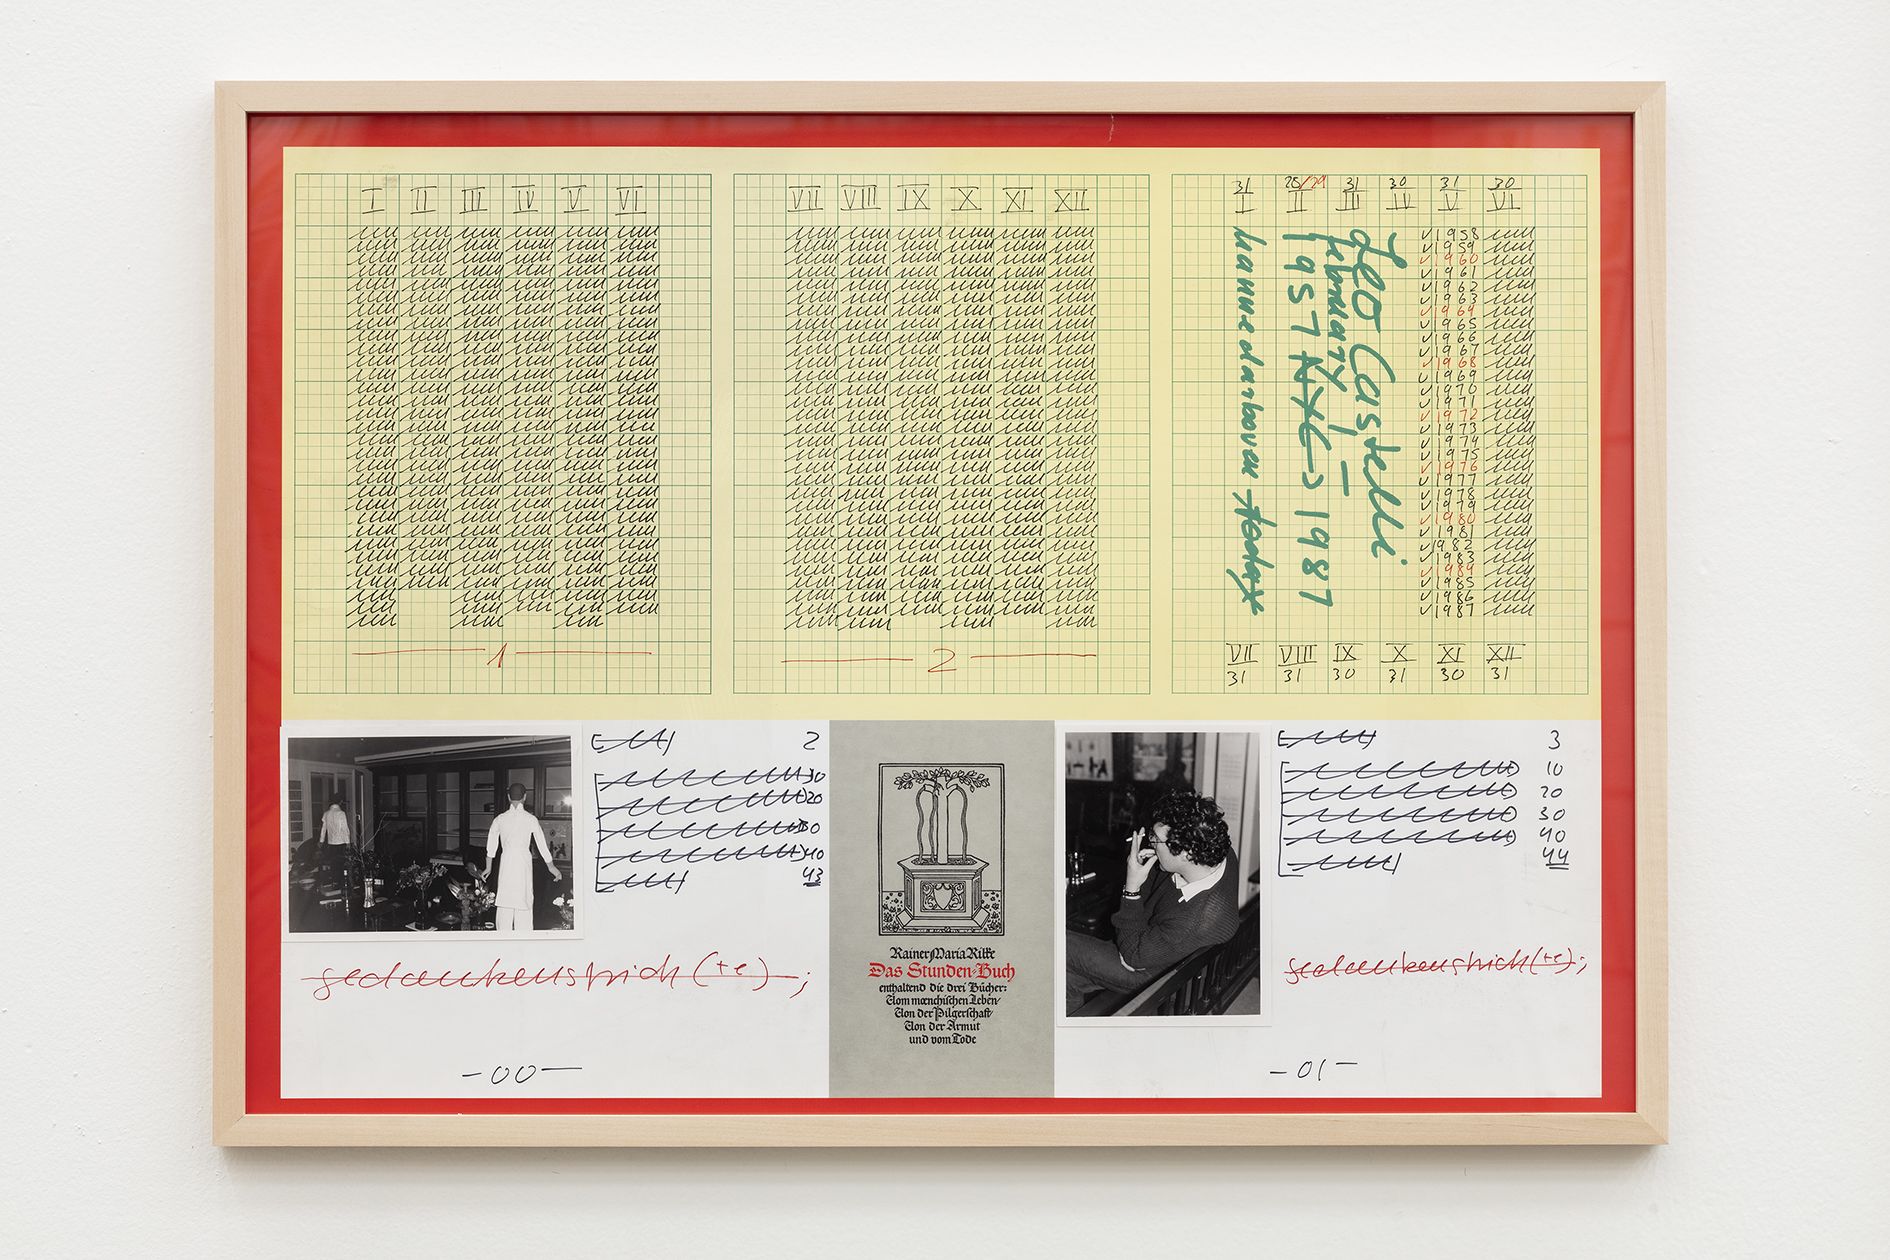 I II III IV V VI
1
VII VIII IX X XI XII
2
31 28/29 31 30 31 30
I II III IV V VI
Leo Castelli
february 1 –
1957 NYC → 1987
hanne darboven today
1958
1959
1960
1961
1962
1963
1964
1965
1966
1967
1968
1969
1970
1971
1972
1973
1974
1975
1976
1977
1978
1979
1980
1981
1982
1983
1984
1985
1986
1987
VII VIII IX X XI XII
31 31 30 31 30 31
2
10
20
30
40
43
gedankenstrich (+e);
– 00 –
Rainer Maria Rilke
Das Stunden-Buch
enthaltend die drei Bücher:
Vom mœnchischen Leben/
Von der Pilgerschaft/
Von der Armut
und vom Tode
3
10
20
30
40
44
gedankenstrich (+e);
– 01 –